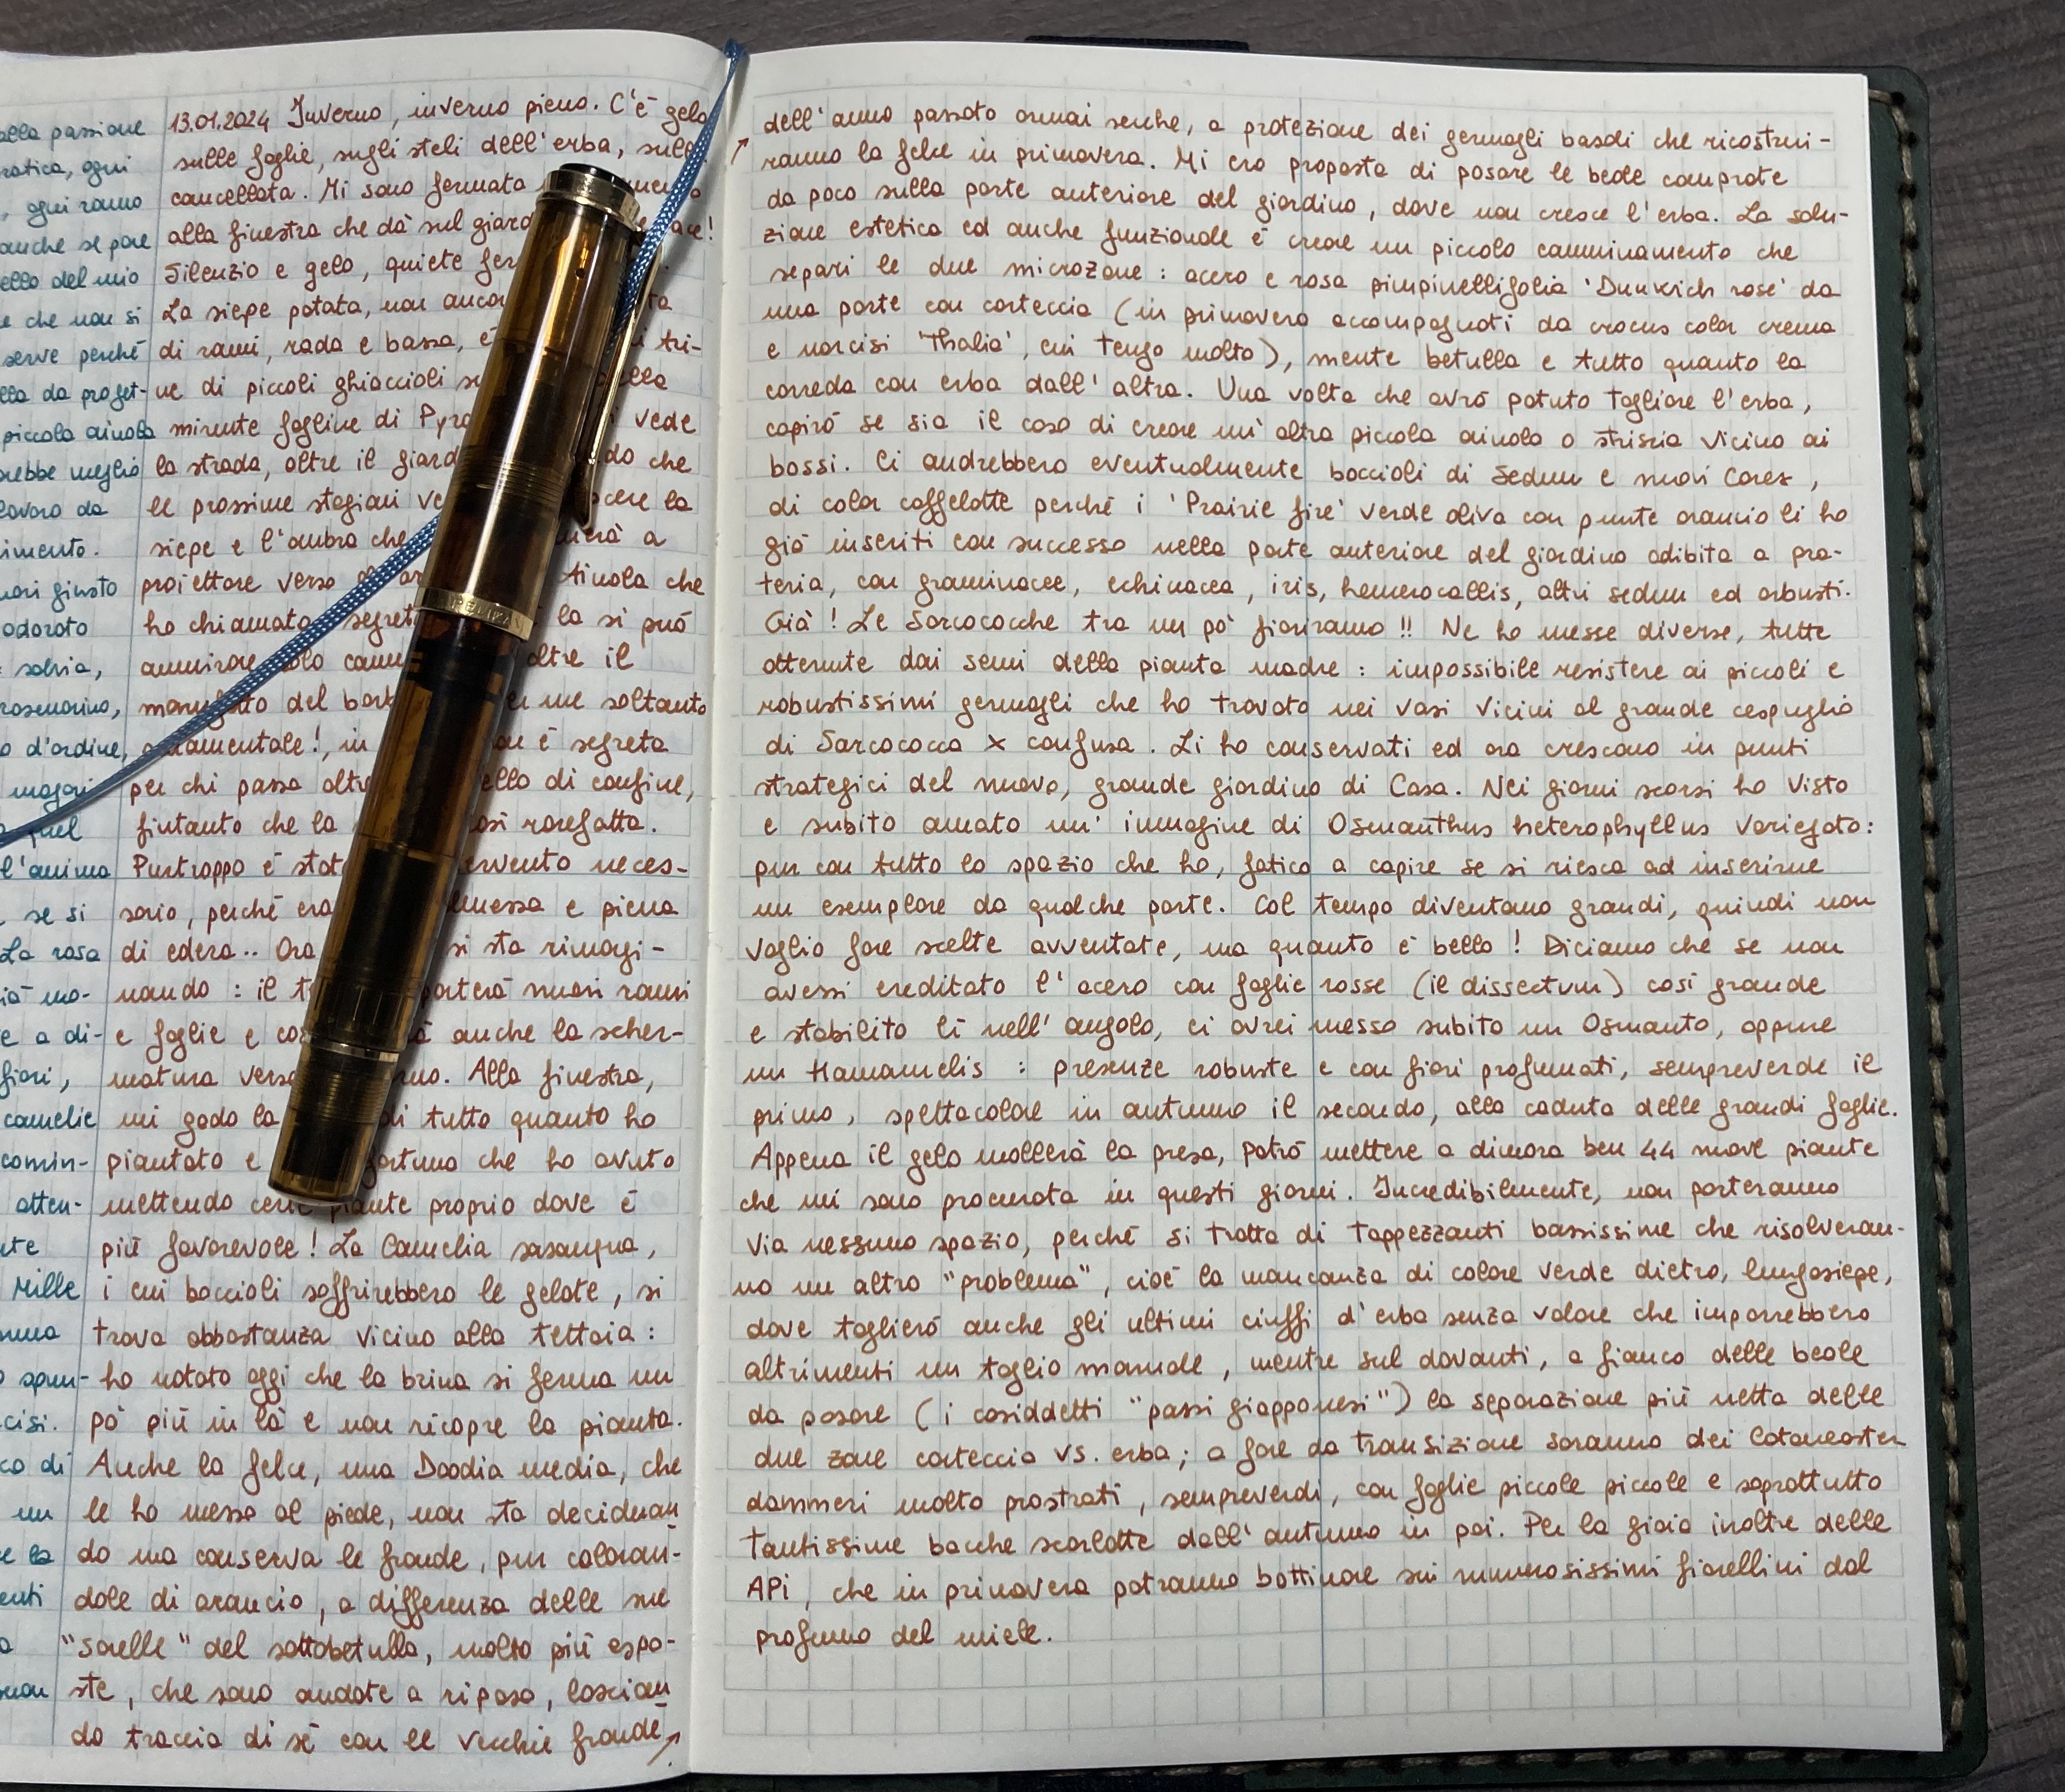 alla passione
ratica, ogni
, ogni ramo
anche se pare
ello del mio
e che non si
serve perché
lla da proget-
piccola aiuola
rebbe meglio
lavoro da
imento.
uori giusto
odorato
salvia,
rosmarino,
o d'ordine,
magari
quel
l'anima
se si
La rosa
ià mo-
e a di-
fiori,
camelie
comin-
atten-
nte
Mille
mma
spun-
cisi.
co di
un
e la
enti
a
suon
13.01.2024 Inverno, inverno pieno. C'è gelo
sulle foglie, sugli steli dell'erba, sulla
cancellata. Mi sono fermata
alla finestra che dà sul giard ace!
Silenzio e gelo, quiete fer
La siepe potata, non ancor ta
di rami, rada e bassa, è i tri-
ne di piccoli ghiaccioli su lla
minute fogline di Pyra vede
la strada, oltre il giard do che
le prossime stagioni ve scere la
siepe e l'ombra che erà a
proiettore verso Aiuola che
ho chiamata segret la si può
ammirare solo cam oltre il
del bor me soltanto
ornamentale!, in on è segreta
per chi passa oltr ello di confine,
fintanto che la così rarefatta.
Purtroppo è stat ervento neces-
sario, perché era dimessa e piena
di edera.. Ora si sta rimargi-
nando : il t porterà nuovi rami
e foglie e cos à anche la scher-
matura verso rno. Alla finestra,
mi godo la di tutto quanto ho
piantato e fortuna che ho avuto
mettendo certe piante proprio dove è
più favorevole! La Camelia sasanqua,
i cui boccioli soffrirebbero le gelate, si
trova abbastanza vicino alla tettoia :
ho notato oggi che la brina si ferma un
pò più in là e non ricopre la pianta.
Anche la felce, una Doodia media, che
le ho messo al piede, non sta deciduan
do ma conserva le fronde, pur coloran-
dole di arancio, a differenza delle sue
"sorelle" del sottobetulla, molto più espo-
ste, che sono andate a riposo, lascian
do traccia di sé con le vecchie fronde
dell'anno passato ormai secche, a protezione dei germogli basali che ricostrui-
ranno la felce in primavera. Mi ero proposta di posare le beole comprate
da poco sulla parte anteriore del giardino, dove non cresce l'erba. La solu-
zione estetica ed anche funzionale è creare un piccolo camminamento che
separi le due microzone : acero e rosa pimpinellifolia 'Dunwich rose' da
una parte con corteccia (in primavera accompagnati da crocus color crema
e narcisi 'Thalia', cui tengo molto), mente betulla e tutto quanto la
correda con erba dall'altra. Una volta che avrò potuto tagliare l'erba,
capirò se sia il caso di creare un'altra piccola aiuola o striscia vicino ai
bossi. Ci andrebbero eventualmente boccioli di Sedum e nuovi Carex,
di color caffelatte perché i 'Prairie fire' verde oliva con punte arancio li ho
già inseriti con successo nella parte anteriore del giardino adibita a pra-
teria, con graminacee, echinacea, iris, hemerocallis, altri sedum ed arbusti.
Già! Le Sarcococche tra un pò fioriranno!! Ne ho messe diverse, tutte
ottenute dai semi della pianta madre : impossibile resistere ai piccoli e
robustissimi germogli che ho trovato nei vasi vicini al grande cespuglio
di Sarcococca x confusa. Li ho conservati ed ora crescono in punti
strategici del nuovo, grande giardino di Casa. Nei giorni scorsi ho visto
e subito amato un'immagine di Osmanthus heterophyllus Variegato:
pur con tutto lo spazio che ho, fatico a capire se si riesca ad inserirne
un esemplare da qualche parte. Col tempo diventano grandi, quindi non
voglio fare scelte avventate, ma quanto è bello! Diciamo che se non
avessi ereditato l'acero con foglie rosse (il dissectum) così grande
e stabilito lì nell'angolo, ci avrei messo subito un Osmanto, oppure
un Hamamelis : presenze robuste e con fiori profumati, sempreverde il
primo, spettacolare in autunno il secondo, alla caduta delle grandi foglie.
Appena il gelo mollerà la presa, potrò mettere a dimora ben 44 nuove piante
che mi sono procurata in questi giorni. Incredibilmente, non porteranno
via nessuno spazio, perché si tratta di tappezzanti bassissime che risolveran-
no un altro "problema", cioè la mancanza di colore verde dietro, lungosiepe,
dove toglierò anche gli ultimi ciuffi d'erba senza valore che imporrebbero
altrimenti un taglio manuale, mentre sul davanti, a fianco delle beole
da posare (i cosiddetti "passi giapponesi") la separazione più netta delle
due zone corteccia vs. erba; a fare da transizione saranno dei Cotoneaster
dammeri molto prostrati, sempreverdi, con foglie piccole piccole e soprattutto
tantissime bacche scarlatte dall'autunno in poi. Per la gioia inoltre delle
APi, che in primavera potranno bottinare sui numerosissimi fiorellini dal
profumo del miele.